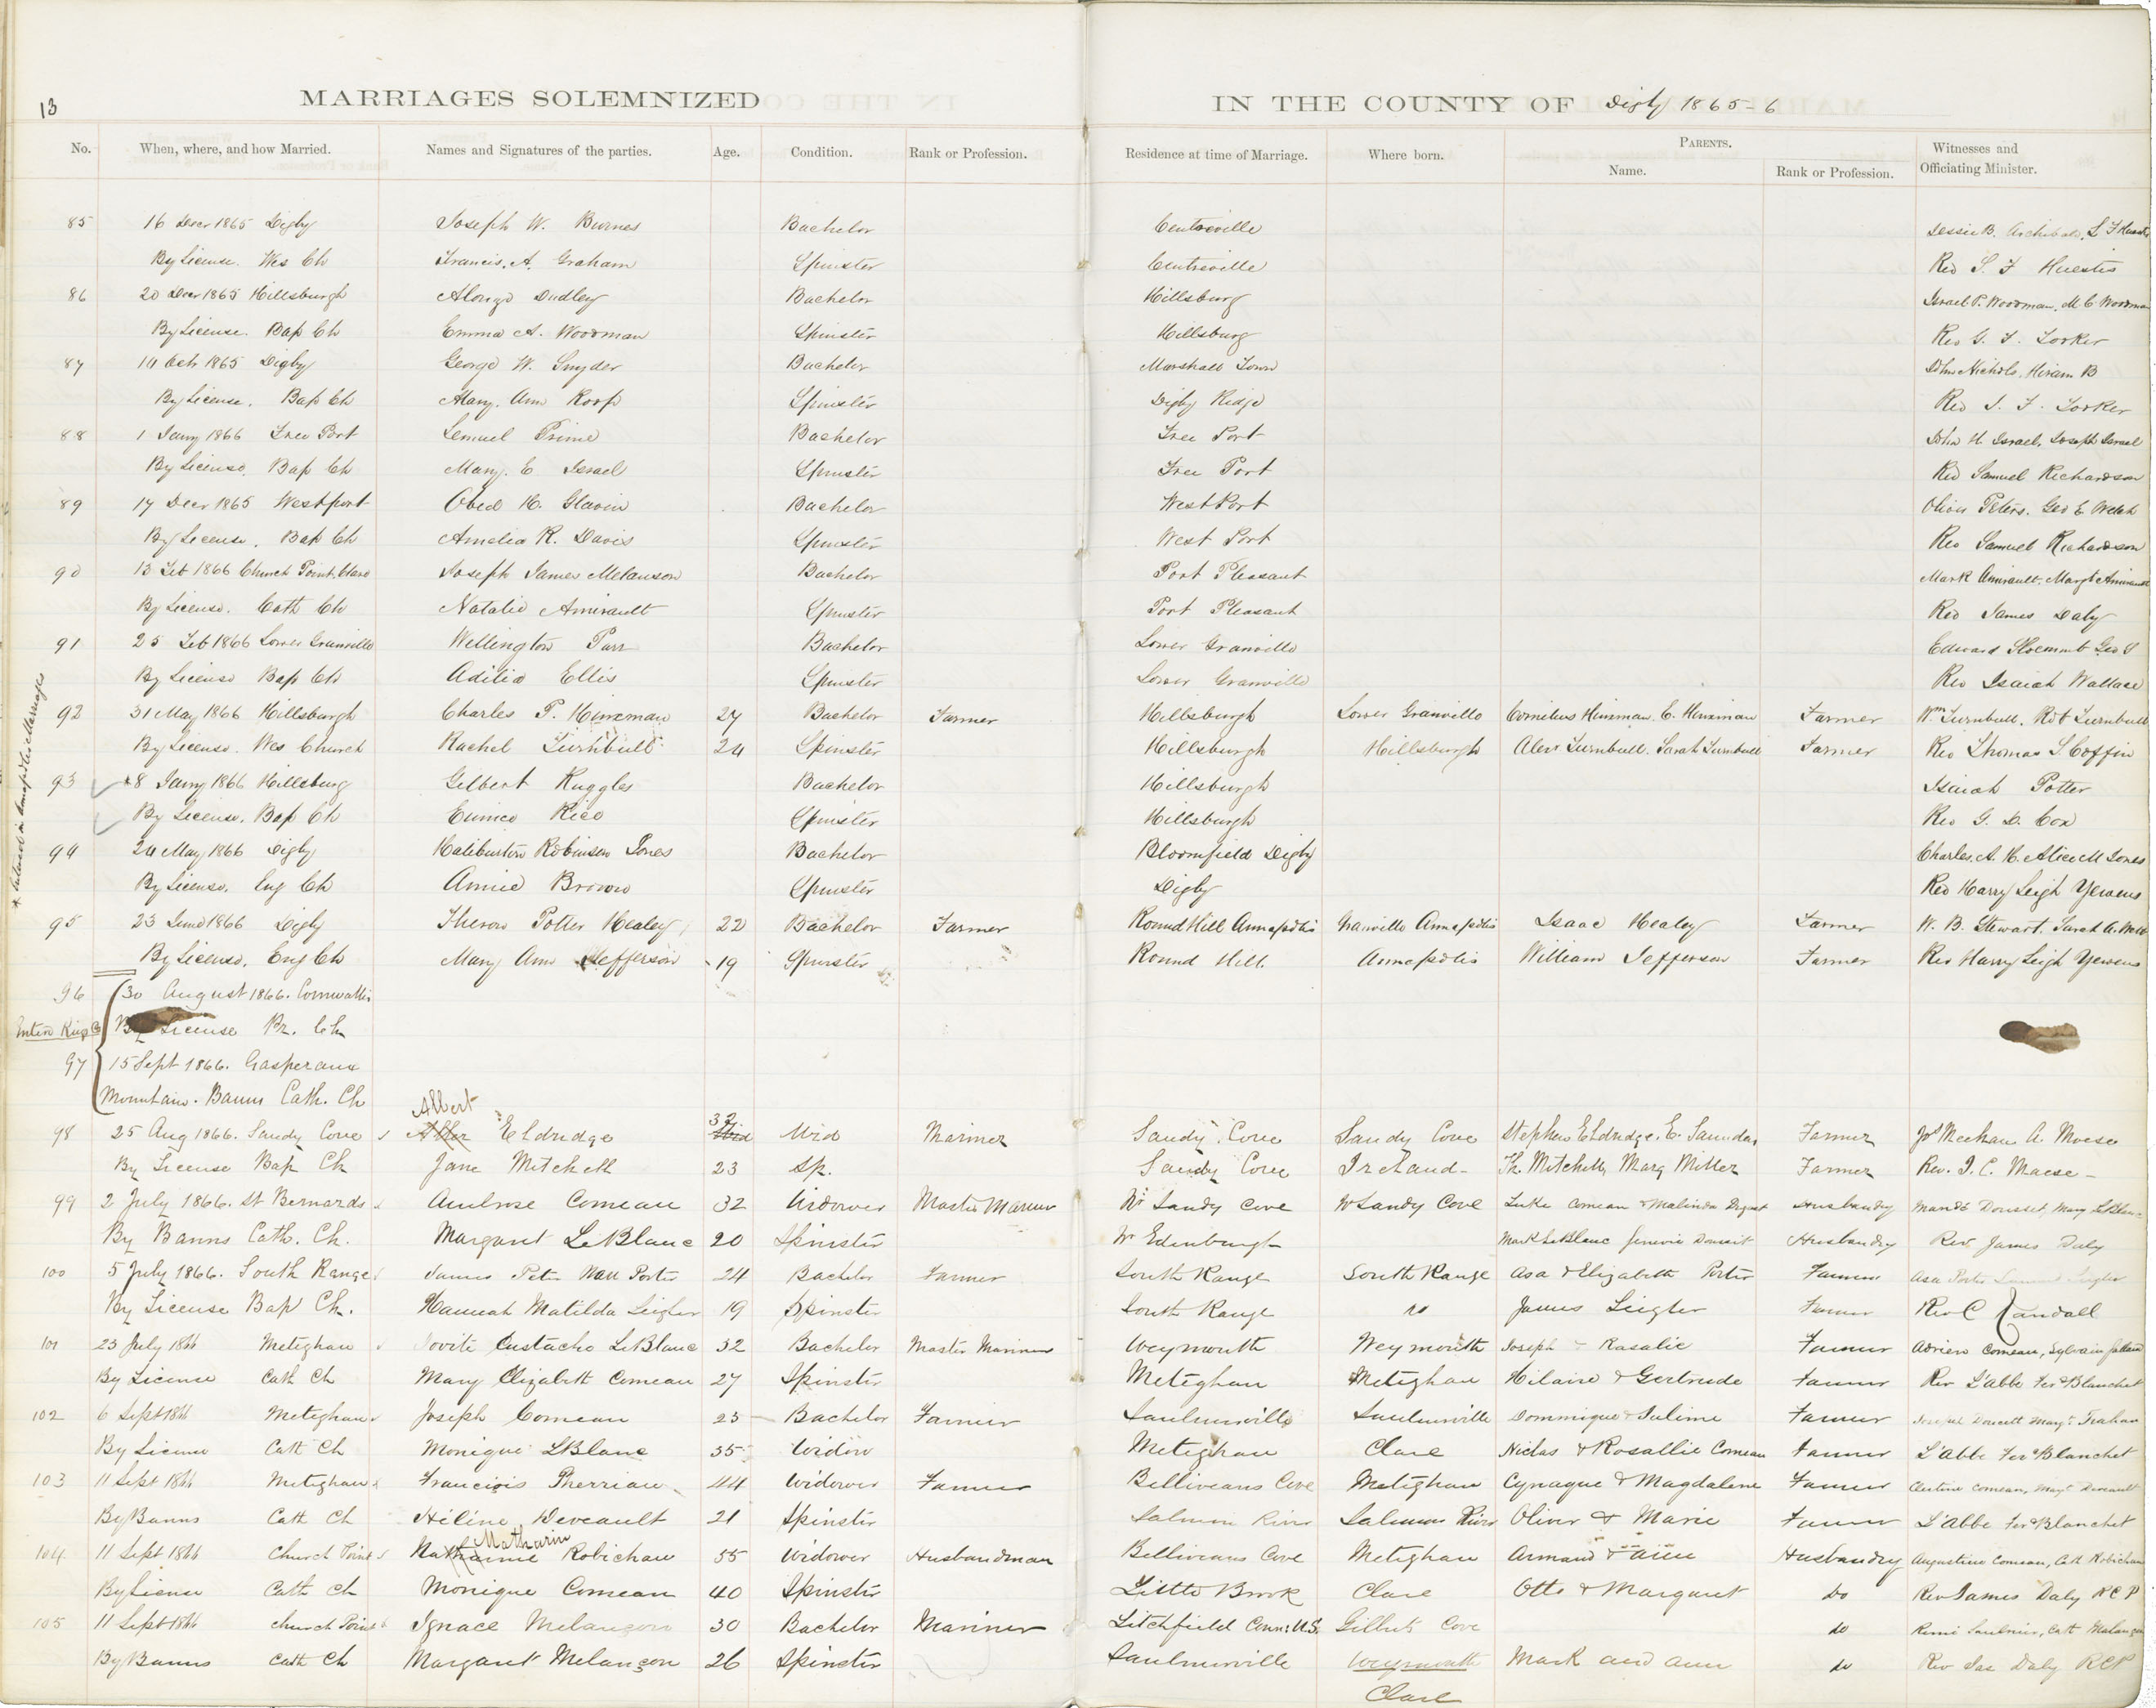 13
MARRIAGES SOLEMNIZED IN THE COUNTY OF Digby 1865-6
No. When, where, and how Married. Names and Signatures of the parties. Age. Condition. Rank or Profession. Residence at time of Marriage. Where born. PARENTS. Name. Rank or Profession. Witnesses and Officiating Minister.
85 16 Decr 1865 Digby Joseph W. Burnes Bachelor Centreville Jessie B. Archibald. S F Huestis
By License. Wes Ch Francis. A. Graham Spinster Centreville Rev S. F Huestis
86 20 Decr 1865 Hillsburgh Alonzo Dudley Bachelor Hillsburg Israel P. Woodman. M C Woodman
By License. Bap Ch Emma A. Woodman Spinster Hillsburg Rev
87 Octr 1865 Digby George W. Snyder Bachelor Marshall Town John Nichols. Hiram B
By License. Bap Ch Mary. Ann Roop Spinster Digby Ridge Rev
88 1 Jany 1866 Free Port Lemuel Prime Bachelor Free Port John H. Israel. Joseph Israel
By License. Bap Ch Mary. E Israel Spinster Free Port Rev Samuel Richardson
89 17 Decr 1865 Westport Obed H. Glavin Bachelor West Port Oliver Peters. Geo E Welch
By License. Bap Ch Amelia R. Davis Spinster West Port Rev Samuel Richardson
90 13 Feb 1866 Church Point. Clare Joseph James Melanson Bachelor Port Pleasant Mark Amirault. Margt Amirault
By License. Cath Ch Natalie Amirault Spinster Port Pleasant Rev James Daly
91 25 Feb 1866 Lower Granville Wellington Parr Bachelor Lower Granville Edward Slocumb Geo S
By License Bap Ch Adilia Ellis Spinster Lower Granville Rev Isaiah Wallace
92 31 May 1866 Hillsburgh Charles P. Hinxman 27 Bachelor Farmer Hillsburgh Lower Granville Cornelius Hinxman. E. Hinxman Farmer Wm Turnbull. Robt Turnbull
By License. Wes Church Rachel Turnbull 24 Spinster Hillsburgh Hillsburgh Alexr Turnbull. Sarah Turnbull Farmer Rev Thomas S. Coffin
93 8 Jany 1866 Hillsburg Gilbert Ruggles Bachelor Hillsburgh Isaiah Potter
By License. Bap Ch Eunice Rice Spinster Hillsburgh Rev G. D. Cox
94 24 May 1866 Digby Haliburton Robinson Jones Bachelor Bloomfield Digby Charles. A. H. Alice M Jones
By License. Eng Ch Annie Brown Spinster Digby Rev Harry Leigh Yewens
95 23 June 1866 Digby Theron Potter Healey 22 Bachelor Farmer Round Hill Annapolis Granville Annapolis Isaac Healey Farmer W. B. Stewart. Sarah A.
By License. Eng Ch Mary Ann Jefferson 19 Spinster Round Hill. Annapolis William Jefferson Farmer Rev Harry Leigh Yewens
* Entered in Annapolis Marriages
96 30 August 1866. Cornwallis
Enter Kings Co By License Pr. Ch
97 15 Sept 1866. Gasperaux
Mountain. Banns Cath. Ch
Albert 32
98 25 Aug 1866. Sandy Cove Eldridge Wid Mariner Sandy Cove Sandy Cove Stephen Eldridge. E. Saunders Farmer Jos Meehan A. Morse
By License Bap Ch Jane Mitchell 23 Sp. Sandy Cove Ireland - Th. Mitchell, Marg Miller Farmer Rev. J. C. Morse -
99 2 July 1866. St Bernards Ambrose Comeau 32 Widower Master Mariner Nr Sandy Cove Nr Sandy Cove Luke Comeau & Malinda Husbandry Doucet, Mary LeBlanc
By Banns Cath. Ch. Margaret LeBlanc 20 Spinster Nr Edinburgh Mark LeBlanc Husbandry Rev James Daly
100 5 July 1866. South Range James Peter Porter 24 Bachelor Farmer South Range South Range Asa & Elizabeth Porter Farmer Asa Porter
By License Bap Ch. Hannah Matilda 19 Spinster South Range Do James Farmer Rev C Randall
101 23 July 1866 Meteghan Jovite Eustache LeBlanc 32 Bachelor Master Mariner Weymouth Weymouth Joseph & Rosalie Farmer Adrien Comeau, Sylvain
By License Cath Ch Mary Elizabeth Comeau 27 Spinster Meteghan Meteghan Hilaire & Gertrude Farmer Rev L'abbe Fer Blanchet
102 6 Sept 1866 Meteghan Joseph Comeau 25 Bachelor Farmer Saulnierville Saulnierville Dominique & Julime Farmer Doucett Margt Trahan
By License Cath Ch Monique LBlanc 35 Widow Meteghan Clare Niclas & Rosallie Comeau Farmer L'abbe Fer Blanchet
103 11 Sept 1866 Meteghan Francois Therriau 44 Widower Farmer Belliveaus Cove Meteghan Cyriaque & Magdalene Farmer Comeau, Margt
By Banns Cath Ch Hiline Deveault 21 Spinster Salmon River Salmon River Oliver & Marie Farmer L'Abbe Fer Blanchet
Matharin
104 11 Sept 1866 Church Point Robichau 55 Widower Husbandman Belliveaus Cove Meteghan Armand & Anne Husbandry Augustine Comeau, Cath Robichau
By License Cath Ch Monique Comeau 40 Spinster Little Brook Clare Otto & Margaret Do Rev James Daly RCP
105 11 Sept 1866 Church Point Ignace Melancon 30 Bachelor Mariner Litchfield Conn: U.S. Gilberts Cove do Remi Saulnier, Cath Melançon
By Banns Cath Ch Margaret Melançon 26 Spinster Saulnierville Weymouth Mark and Ann do Rev Jas Daly RCP
Clare